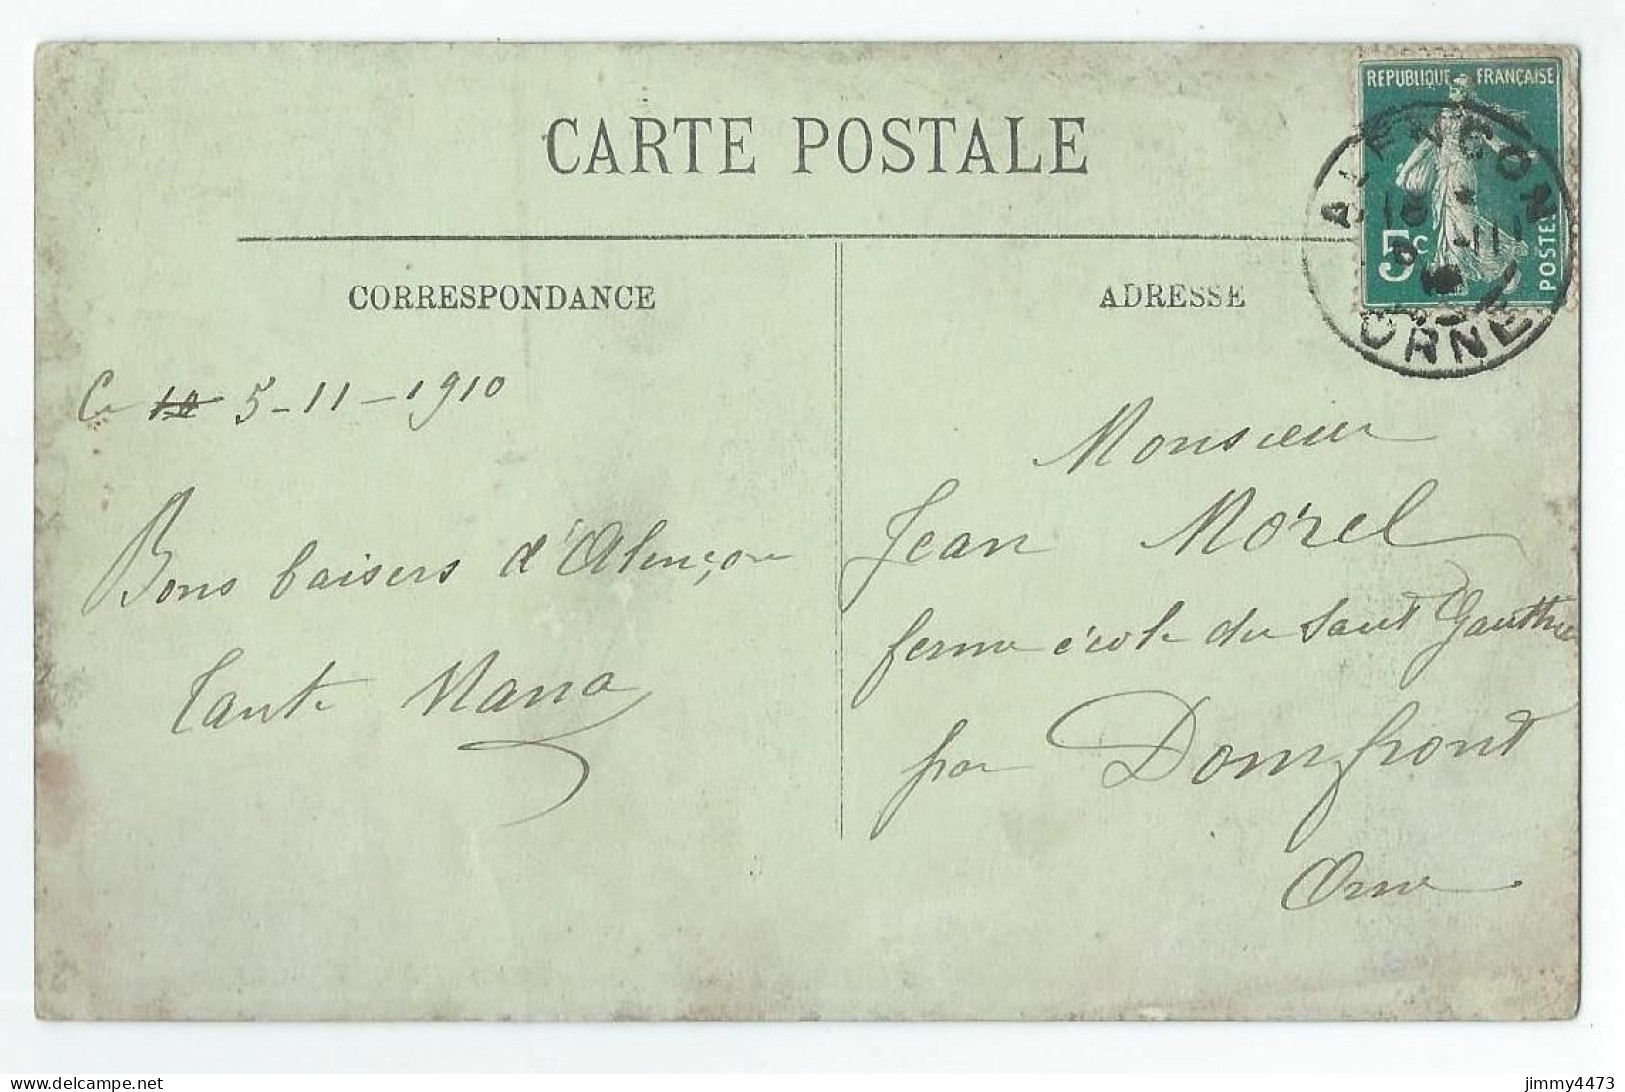 CARTE POSTALE
REPUBLIQUE FRANÇAISE
5c
POSTES
ALENCON
ORNE
CORRESPONDANCE
ADRESSE
Ce 10 5-11-1910
Bons baisers d'Alençon
Tante
Monsieur
Jean Morel
ferme école du Saut Gauthier
par Domfront
Orne
delcampe.net
jimmy4473